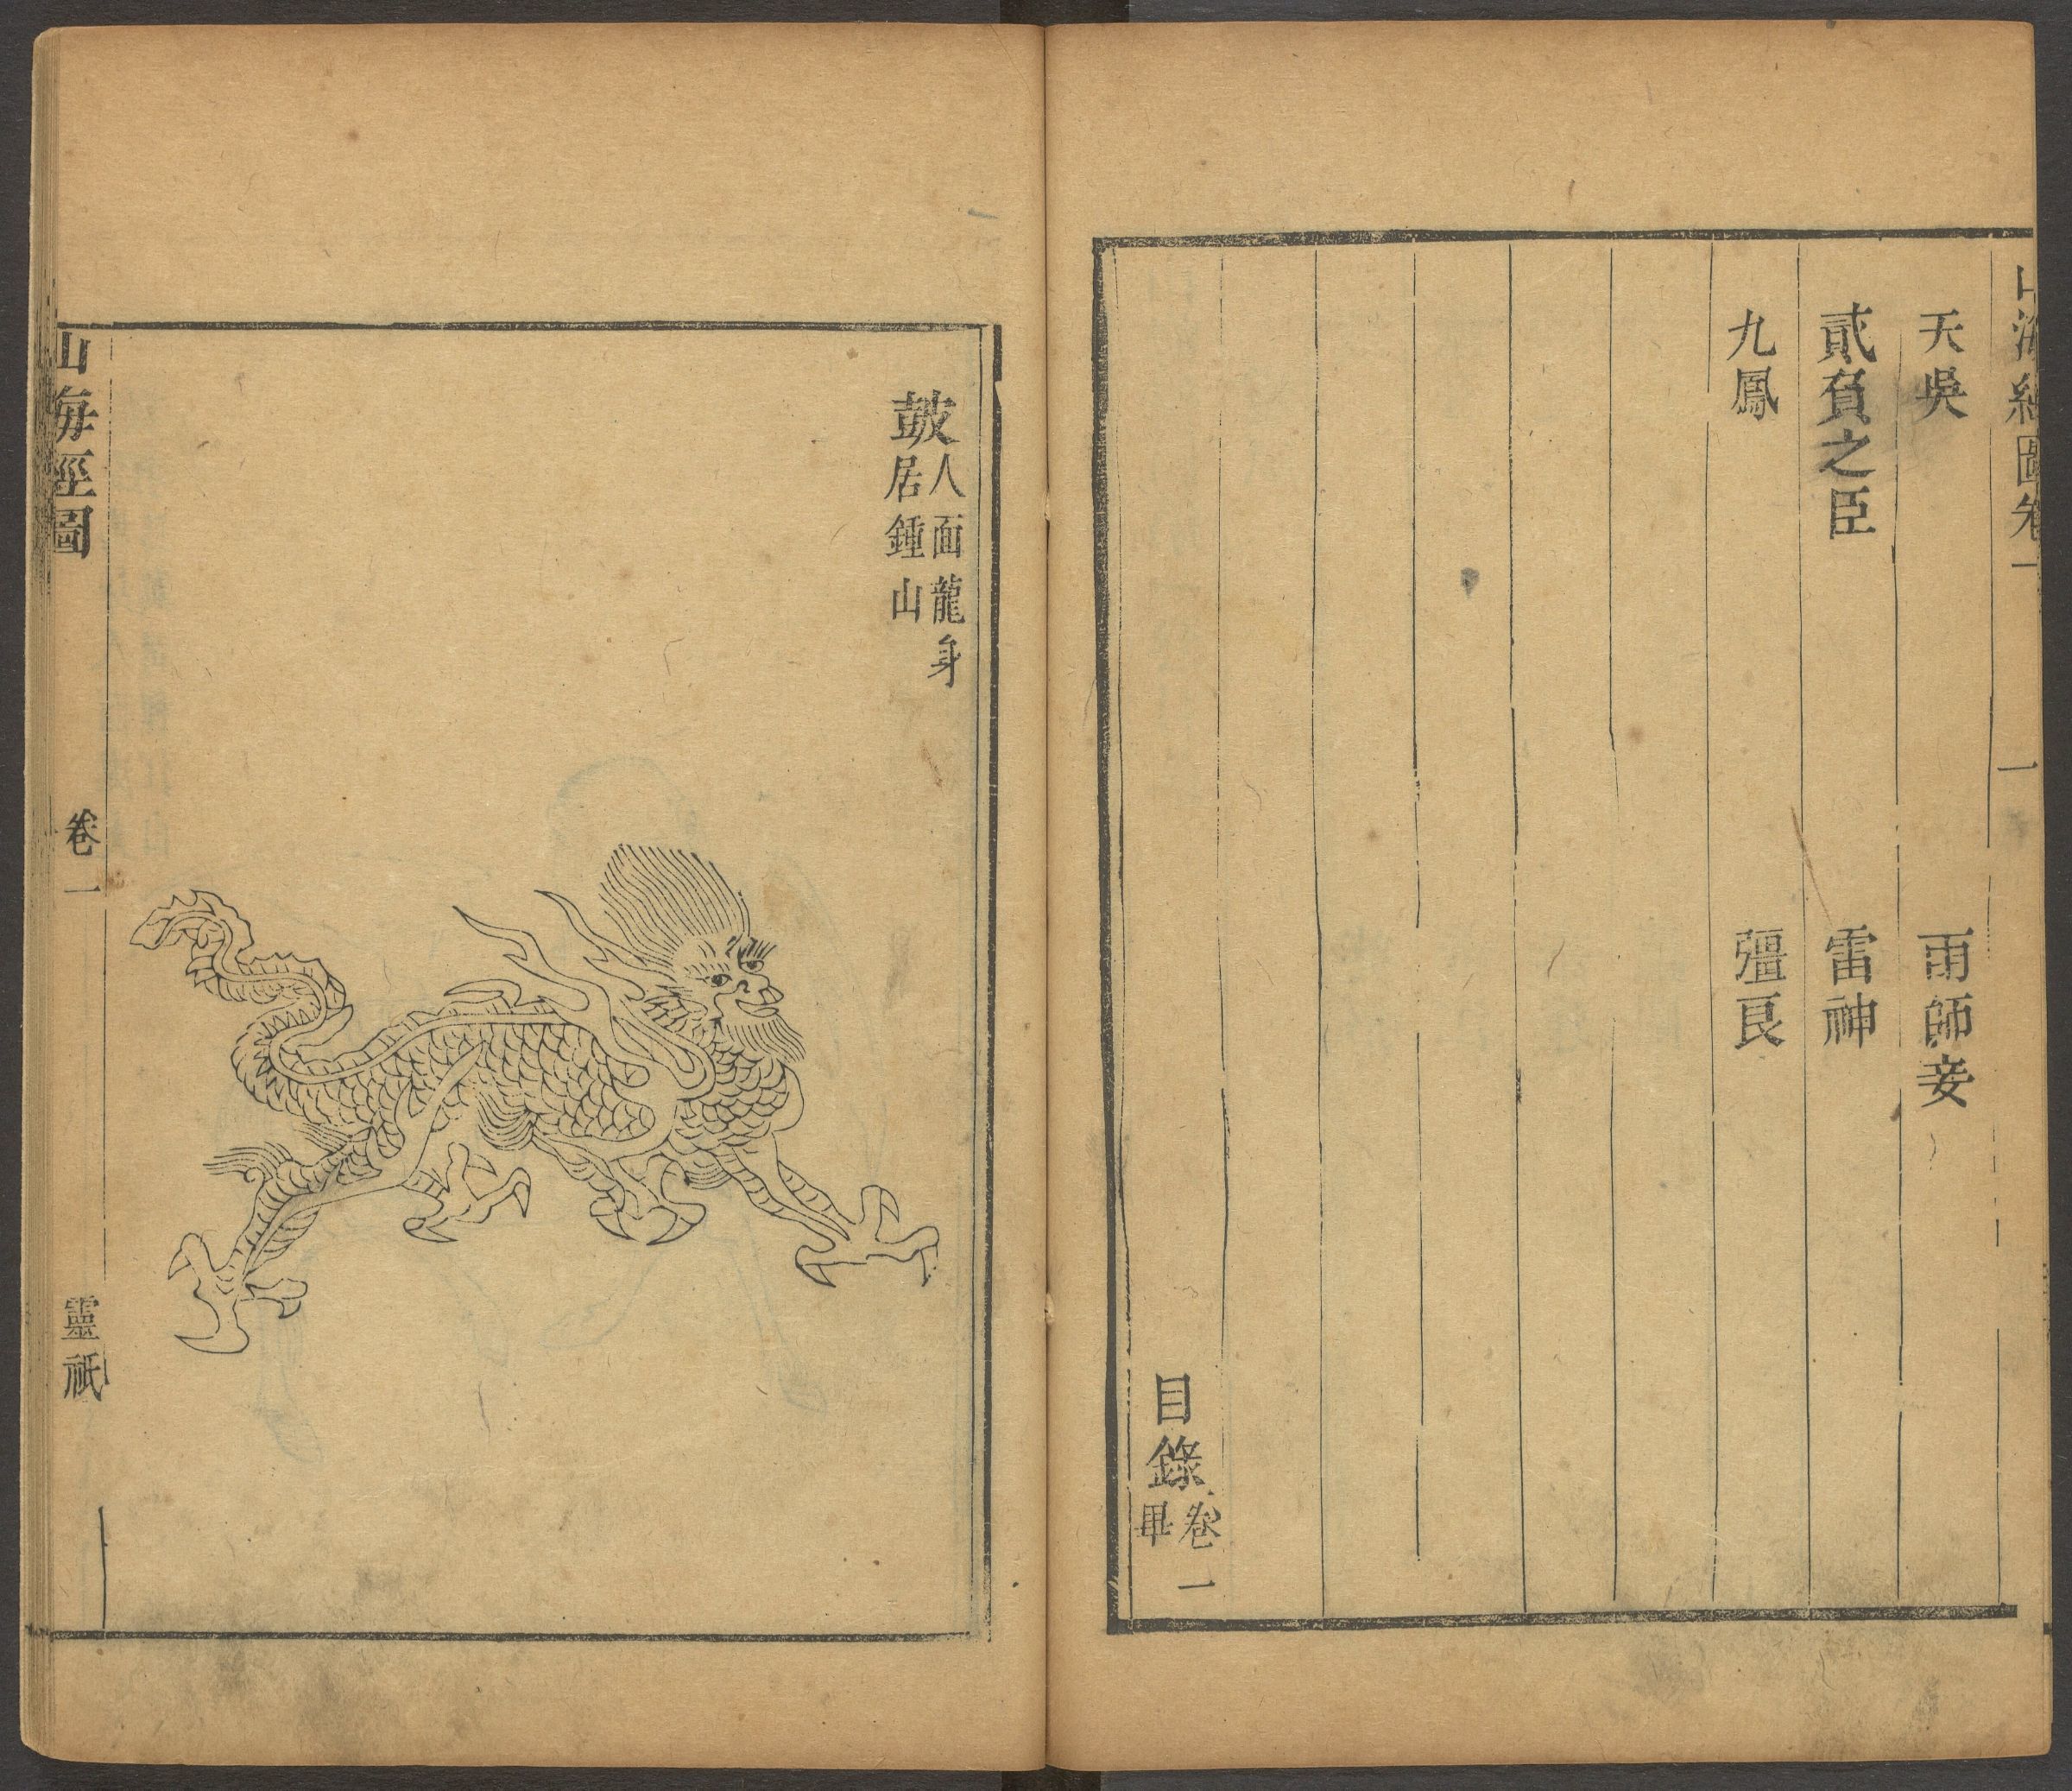 山海經圖卷一 一
天吳 雨師妾
貳負之臣 雷神
九鳳 彊良
目錄卷一畢
鼓
人面龍身
居鍾山
山海經圖 卷一 靈祇